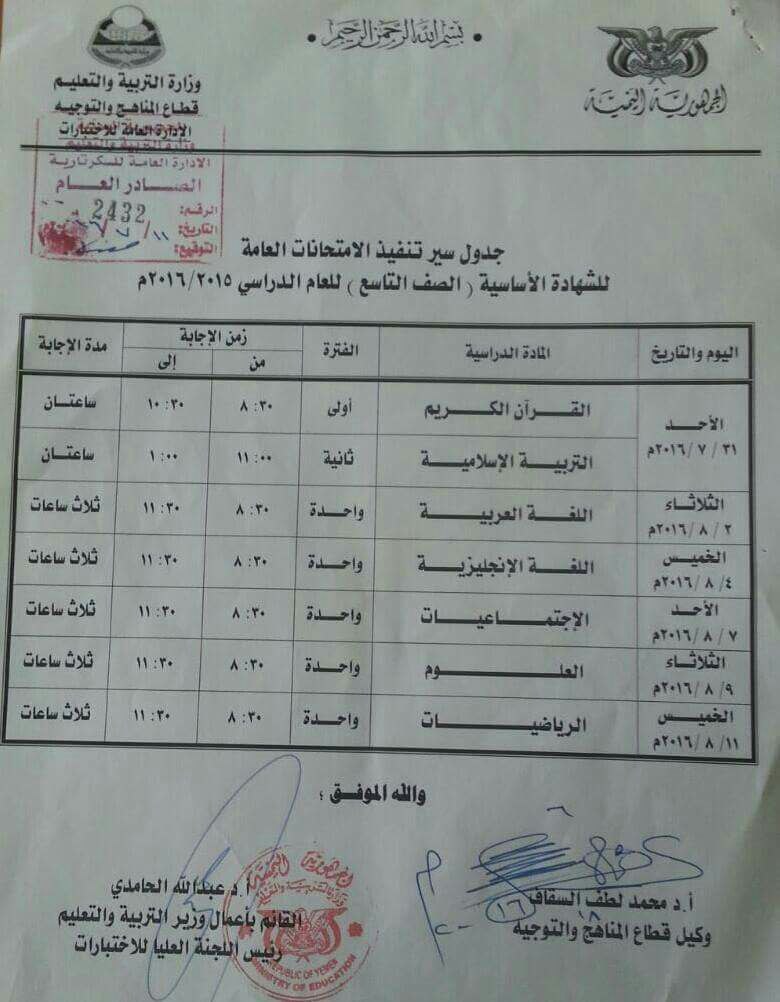 بسم الله الرحمن الرحيم
الجمهورية اليمنية
وزارة التربية والتعليم
قطاع المناهج والتوجيه
الإدارة العامة للاختبارات
وزارة التربية والتعليم
الادارة العامة للسكرتارية
الصادر العام
الرقم: 2432
التاريخ: ١١/ ٧/
التوقيع:
جدول سير تنفيذ الامتحانات العامة
للشهادة الأساسية (الصف التاسع) للعام الدراسي ٢٠١٦/٢٠١٥م
اليوم والتاريخ المادة الدراسية الفترة زمن الإجابة مدة الإجابة
من إلى
الأحد ٣١ / ٧ / ٢٠١٦م القرآن الكريم أولى ٨:٣٠ ١٠:٣٠ ساعتان
التربية الإسلامية ثانية ١١:٠٠ ١:٠٠ ساعتان
الثلاثاء ٢ / ٨ / ٢٠١٦م اللغة العربية واحدة ٨:٣٠ ١١:٣٠ ثلاث ساعات
الخميس ٤ / ٨ / ٢٠١٦م اللغة الإنجليزية واحدة ٨:٣٠ ١١:٣٠ ثلاث ساعات
الأحد ٧ / ٨ / ٢٠١٦م الإجتماعيات واحدة ٨:٣٠ ١١:٣٠ ثلاث ساعات
الثلاثاء ٩ / ٨ / ٢٠١٦م العلوم واحدة ٨:٣٠ ١١:٣٠ ثلاث ساعات
الخميس ١١ / ٨ / ٢٠١٦م الرياضيات واحدة ٨:٣٠ ١١:٣٠ ثلاث ساعات
والله الموفق ؛
أ.د محمد لطف السقاف
وكيل قطاع المناهج والتوجيه
أ.د عبدالله الحامدي
القائم بأعمال وزير التربية والتعليم
رئيس اللجنة العليا للاختبارات
REPUBLIC OF YEMEN
MINISTRY OF EDUCATION